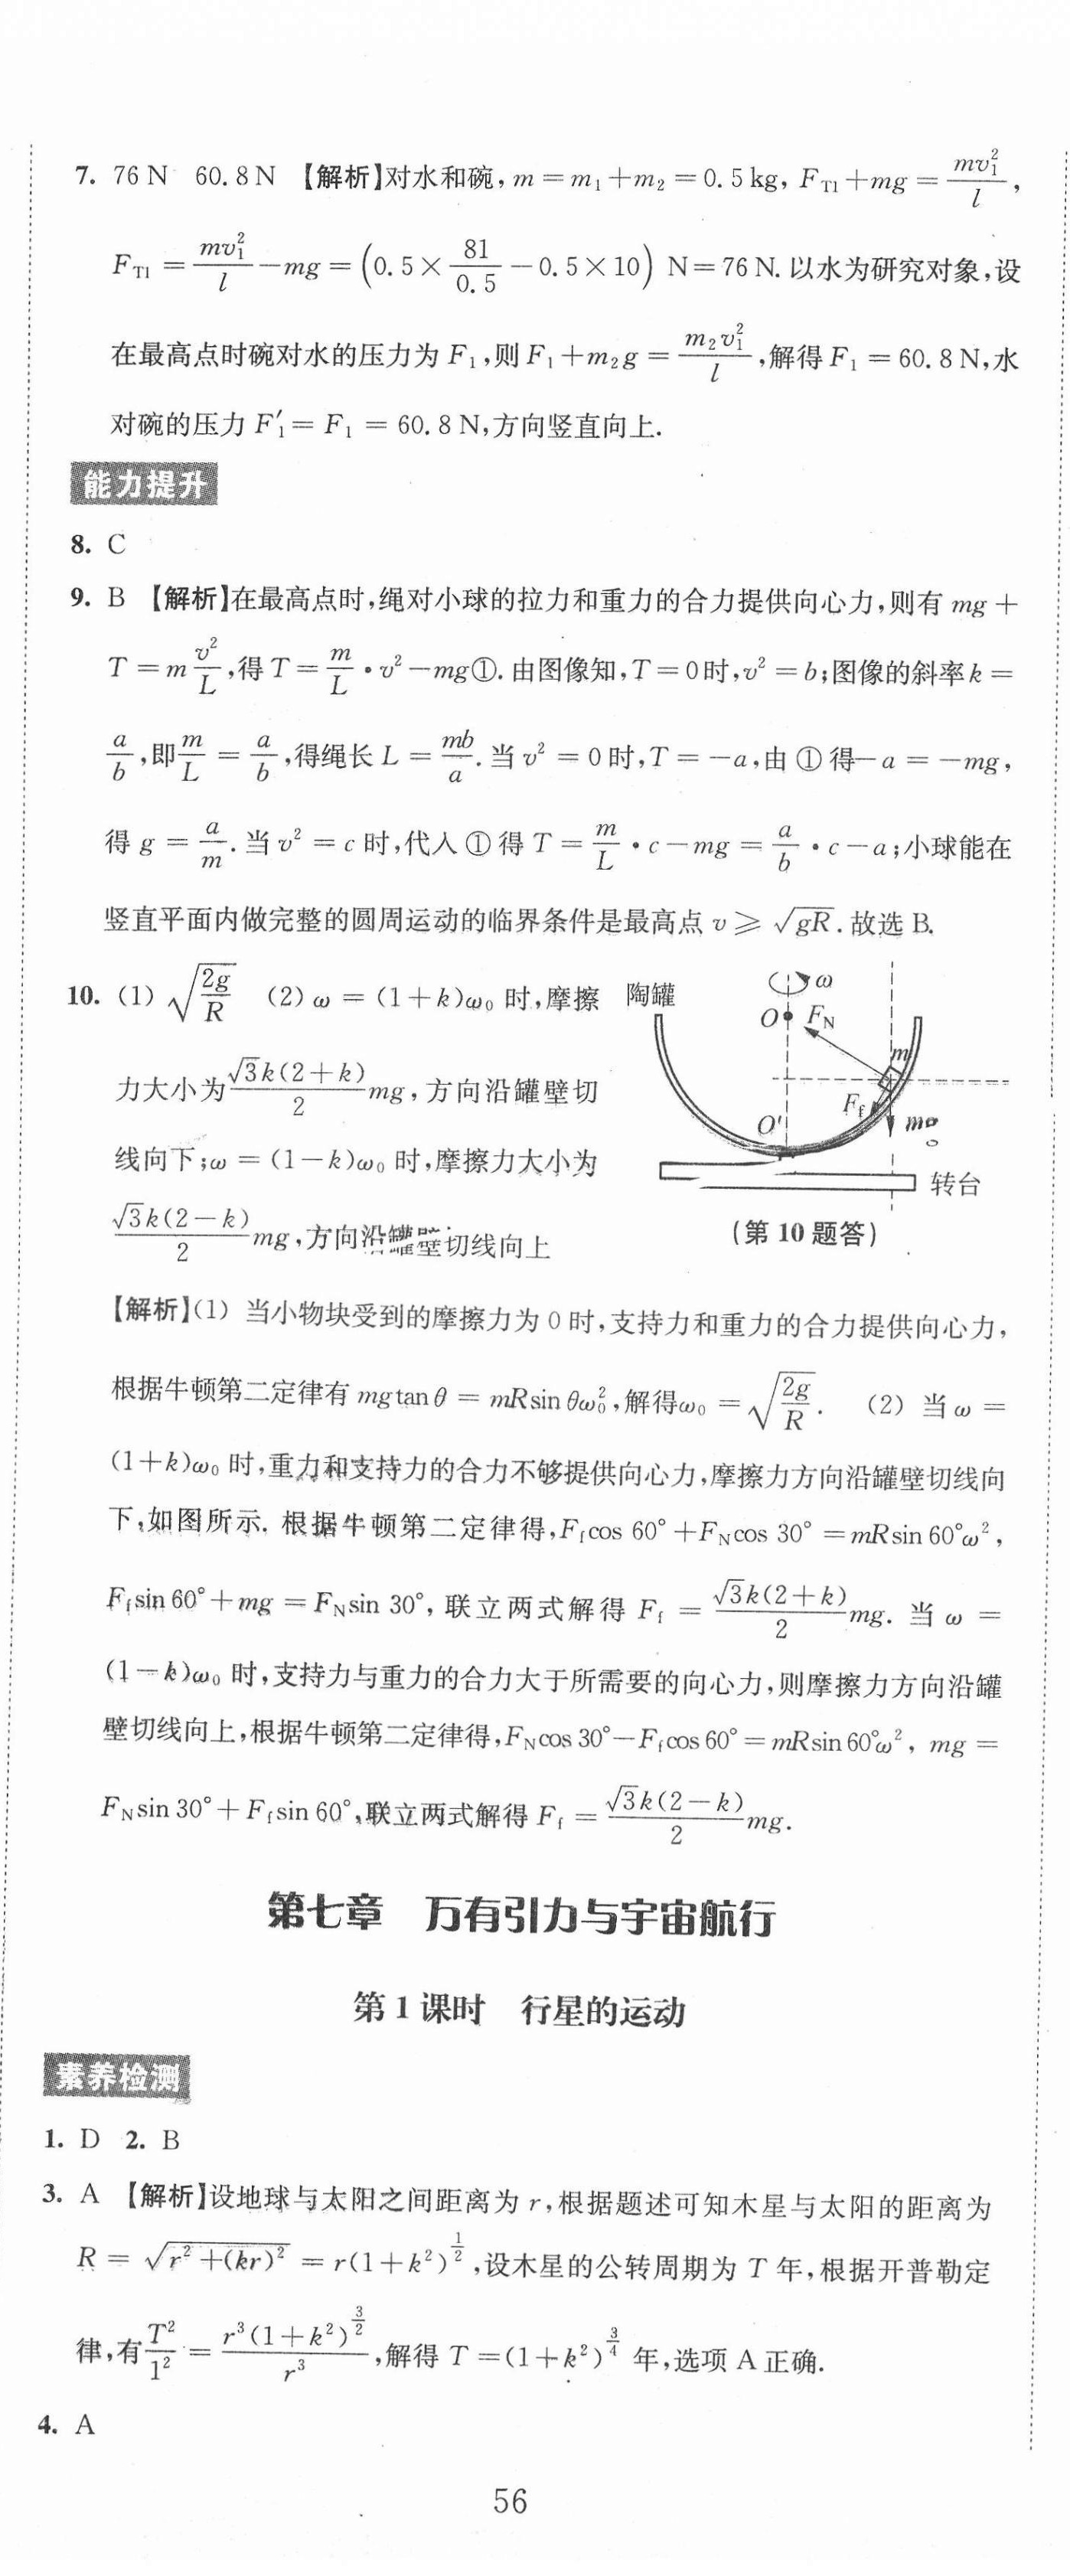 7. 76 N 60.8 N 【解析】对水和碗, m = m₁ + m₂ = 0.5 kg, F_T1 + mg = mv₁²/l,
F_T1 = mv₁²/l − mg = (0.5 × 81/0.5 − 0.5 × 10) N = 76 N. 以水为研究对象,设
在最高点时碗对水的压力为 F₁,则 F₁ + m₂g = m₂v₁²/l,解得 F₁ = 60.8 N,水
对碗的压力 F₁′ = F₁ = 60.8 N,方向竖直向上.
能力提升
8. C
9. B 【解析】在最高点时,绳对小球的拉力和重力的合力提供向心力,则有 mg +
T = m v²/L,得 T = m/L · v² − mg①. 由图像知,T = 0 时,v² = b;图像的斜率 k =
a/b,即 m/L = a/b,得绳长 L = mb/a. 当 v² = 0 时,T = −a,由 ① 得 −a = −mg,
得 g = a/m. 当 v² = c 时,代入 ① 得 T = m/L · c − mg = a/b · c − a;小球能在
竖直平面内做完整的圆周运动的临界条件是最高点 v ⩾ √(gR). 故选 B.
10. (1) √(2g/R) (2) ω = (1+k)ω₀ 时,摩擦
力大小为 √3k(2+k)/2 mg,方向沿罐壁切
线向下;ω = (1−k)ω₀ 时,摩擦力大小为
√3k(2−k)/2 mg,方向沿罐壁切线向上
陶罐
ω
O
F_N
m
F_f
O′
mg
转台
(第 10 题答)
【解析】(1) 当小物块受到的摩擦力为 0 时,支持力和重力的合力提供向心力,
根据牛顿第二定律有 mgtan θ = mRsin θω₀²,解得ω₀ = √(2g/R). (2) 当 ω =
(1+k)ω₀ 时,重力和支持力的合力不够提供向心力,摩擦力方向沿罐壁切线向
下,如图所示. 根据牛顿第二定律得,F_f cos 60° + F_N cos 30° = mRsin 60°ω²,
F_f sin 60° + mg = F_N sin 30°, 联立两式解得 F_f = √3k(2+k)/2 mg. 当 ω =
(1−k)ω₀ 时,支持力与重力的合力大于所需要的向心力,则摩擦力方向沿罐
壁切线向上,根据牛顿第二定律得,F_N cos 30° − F_f cos 60° = mRsin 60°ω², mg =
F_N sin 30° + F_f sin 60°,联立两式解得 F_f = √3k(2−k)/2 mg.
第七章 万有引力与宇宙航行
第 1 课时 行星的运动
素养检测
1. D 2. B
3. A 【解析】设地球与太阳之间距离为 r,根据题述可知木星与太阳的距离为
R = √(r² + (kr)²) = r(1+k²)^(1/2),设木星的公转周期为 T 年,根据开普勒定
律,有 T²/1² = r³(1+k²)^(3/2)/r³,解得 T = (1+k²)^(3/4) 年,选项 A 正确.
4. A
56